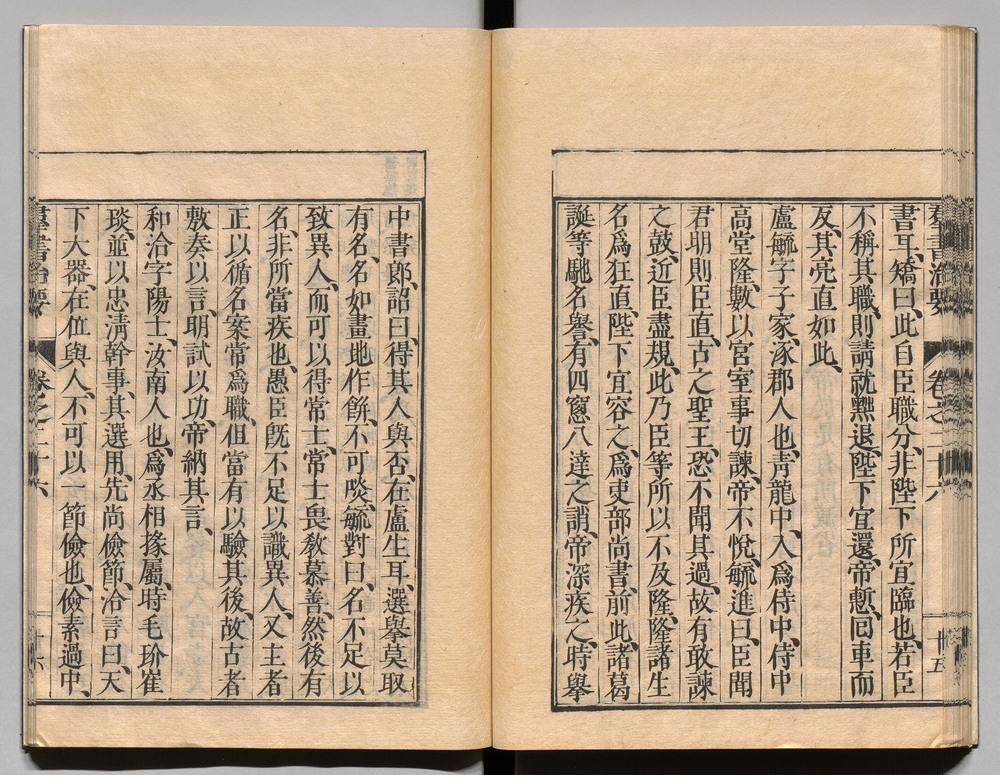 羣書治要 卷之二十六 廿五
書耳、矯曰、此自臣職分、非陛下所宜臨也、若臣
不稱其職、則請就黜退、陛下宜還、帝慙、回車而
反、其亮直如此、
盧毓字子家、涿郡人也、靑龍中、入爲侍中、侍中
高堂隆、數以宮室事切諫、帝不悅、毓進曰、臣聞
君明則臣直、古之聖王、恐不聞其過、故有敢諫
之鼓、近臣盡規、此乃臣等所以不及隆、隆諸生
名爲狂直、陛下宜容之、爲吏部尚書、前此諸葛
誕等馳名譽、有四窻八達之誚、帝深疾之、時舉
中書郎、詔曰、得其人與否、在盧生耳、選舉莫取
有名、名如畫地作餅、不可啖、毓對曰、名不足以
致異人、而可以得常士、常士畏敎慕善、然後有
名、非所當疾也、愚臣旣不足以識異人、又主者
正以循名案常爲職、但當有以驗其後、故古者
敷奏以言、明試以功、帝納其言、
和洽字陽士、汝南人也、爲丞相掾屬、時毛玠崔
琰、並以忠淸幹事、其選用、先尚儉節、洽言曰、天
下大器、在位與人、不可以一節儉也、儉素過中、
羣書治要 卷之二十六 廿六